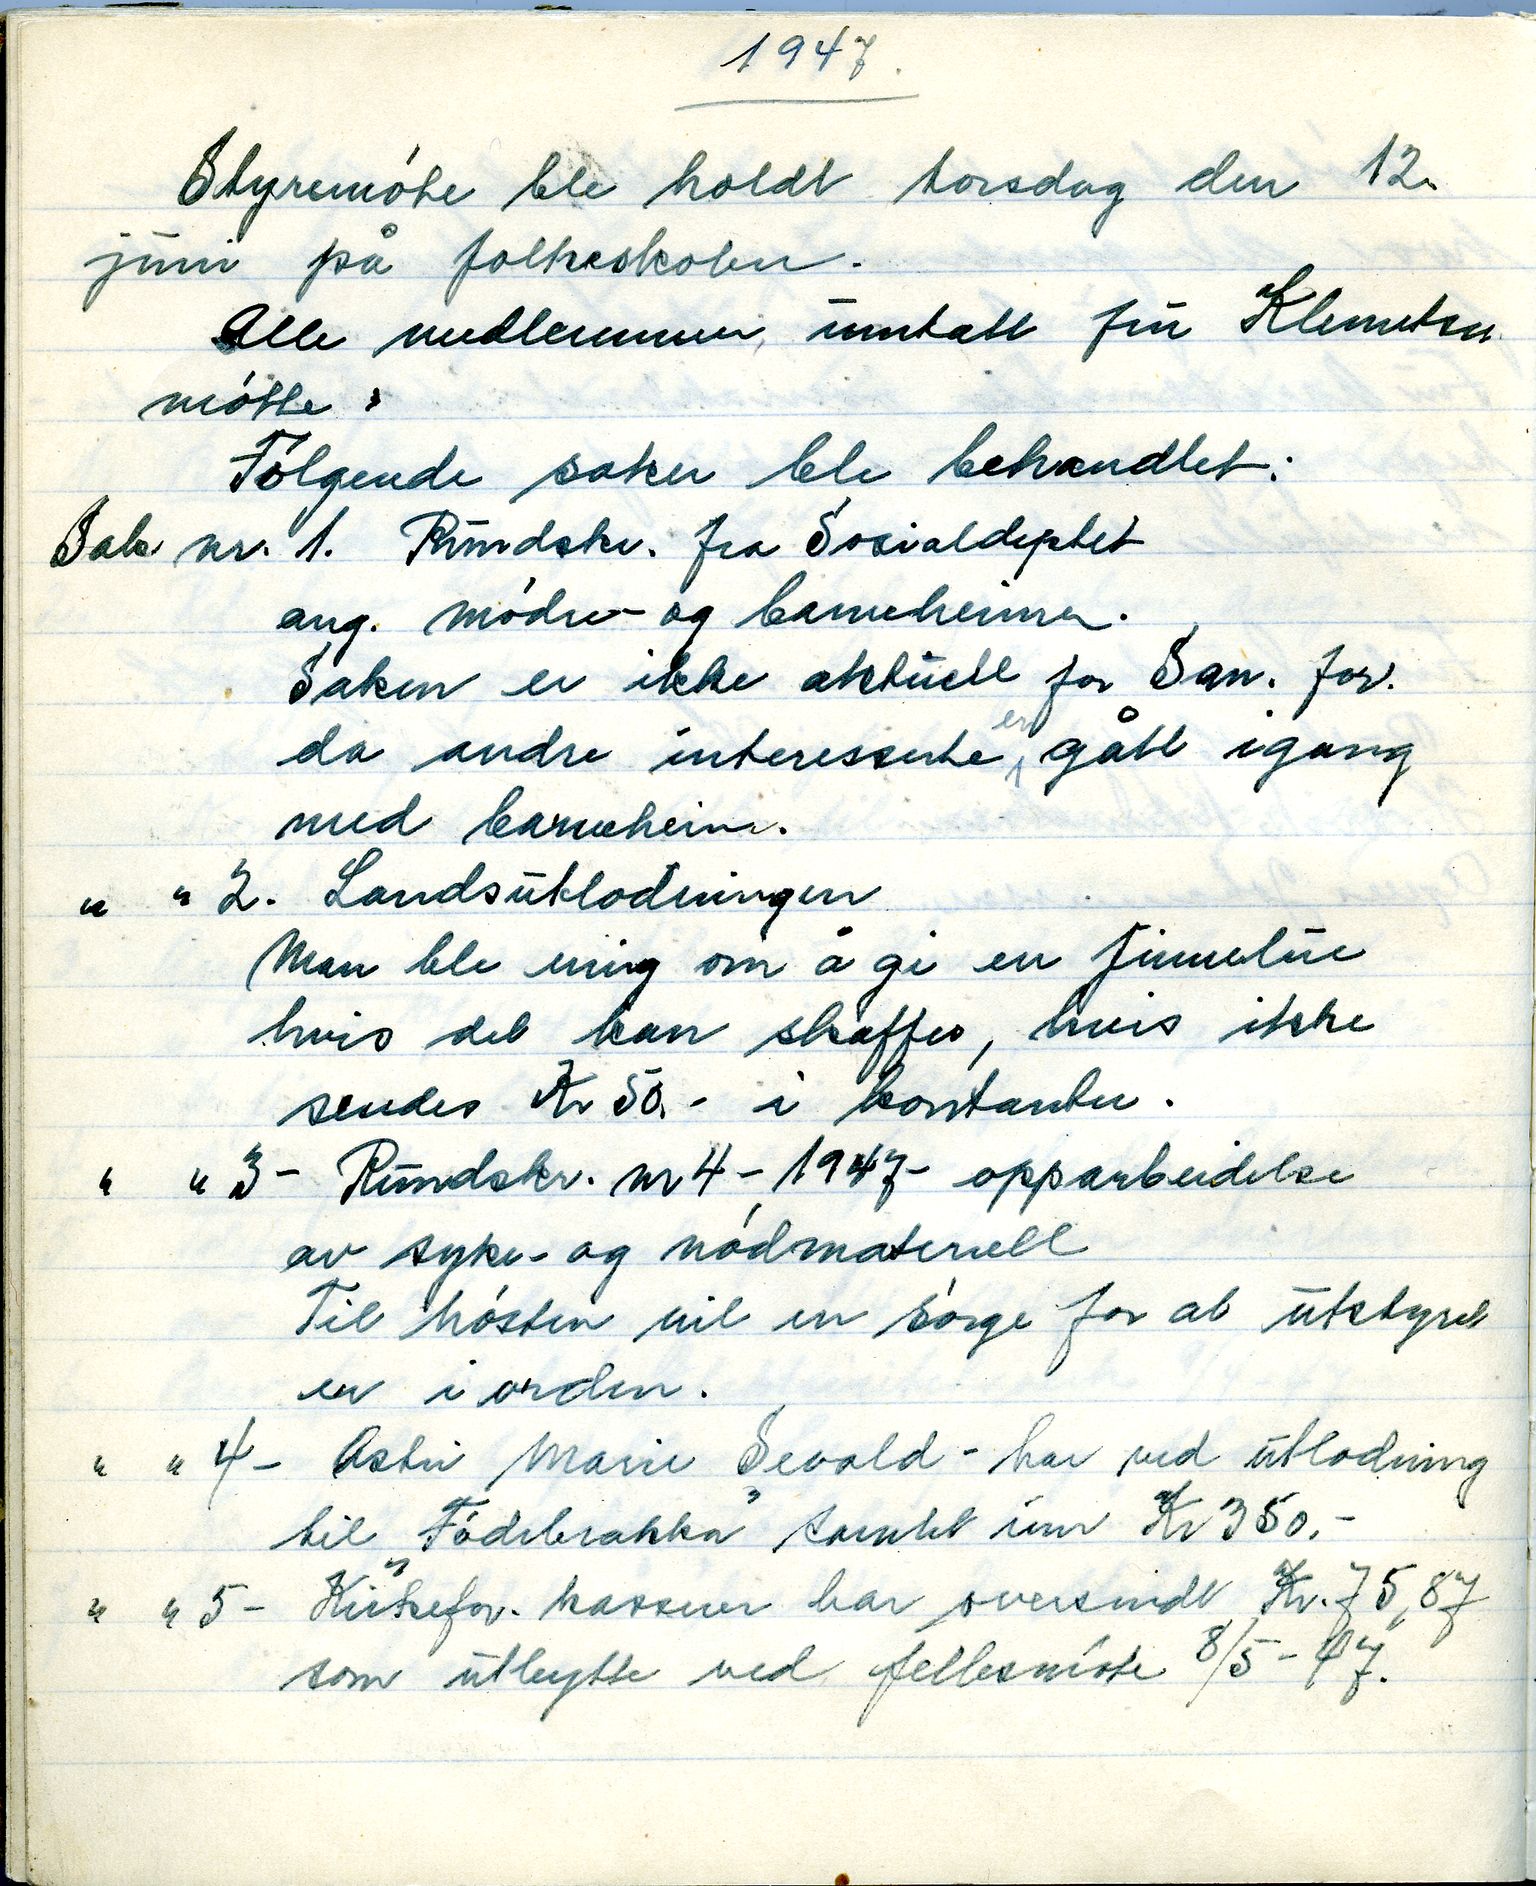 1947.
Styremöte ble holdt torsdag den 12.
juni på folkeskolen.
Alle medlemmer, unntatt fru Klemetsen
mötte.
Fölgende saker ble behandlet:
Sak nr. 1. Rundskr. fra Sosialdeptet
ang. mödre- og barneheimer.
Saken er ikke aktuell for San. for.
da andre interesserte er gått igang
med barneheim.
" " 2. Landsutlodningen
Man ble enig om å gi en finnelue
hvis det kan skaffes, hvis ikke
sendes Kr 50.- i kontanter.
" " 3- Rundskr. nr 4-1947- opparbeidelse
av syke- og nödmateriell
Til hösten vil en sörge for at utstyret
er i orden.
" " 4- Astri Marie Sevald - har ved utlodning
til "Födebrakka" samlet inn Kr 350,-
" " 5- Kirkefor. kasserer har oversendt Kr. 75,87
som utbytte ved fellesmöte 8/5-47.